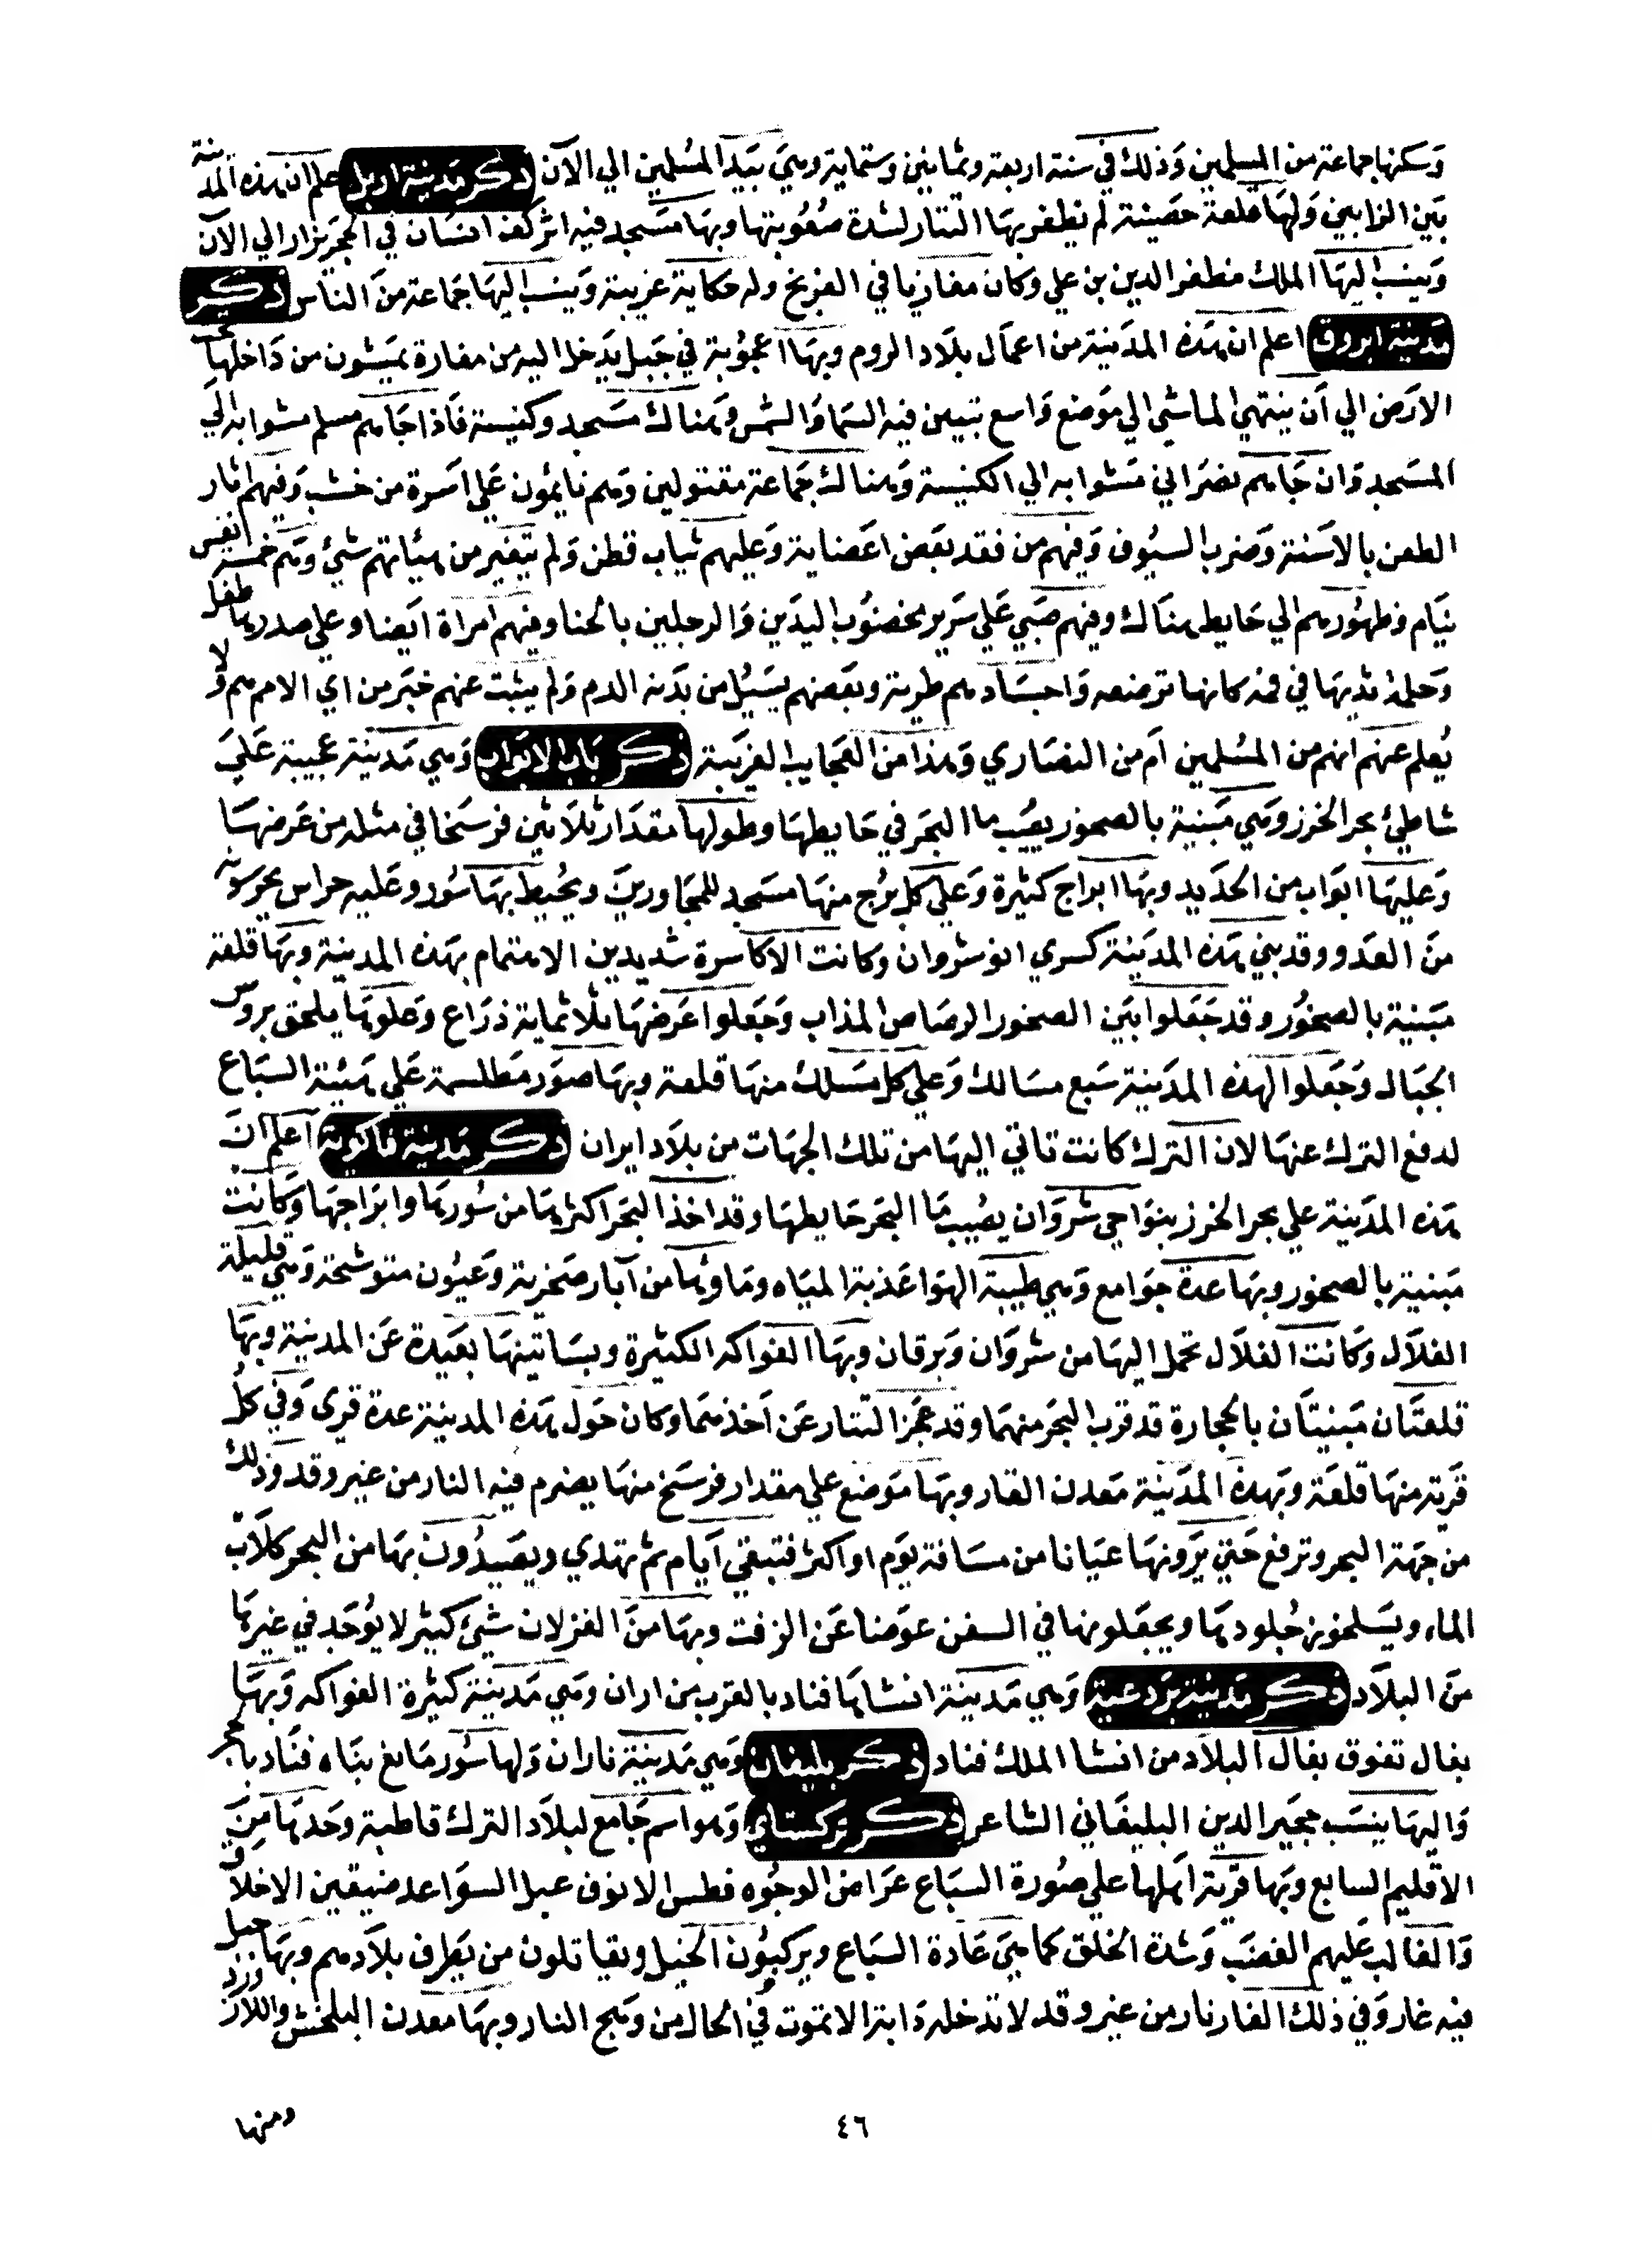 وسكنها جماعة من المسلمين وذلك في سنة اربعة وثمانين وستماية وهي بيد المسلمين الي الآن ذكر مدينة اربل اعلم ان هذه المدينة
بين الزابين ولها قلعة حصينة لم يظفر بها التتار لشدة صعوبتها وبها مسجد فيه اثر كف انسان في الحجر يزار الي الآن
وينسب اليها الملك مظفر الدين بن علي وكان مغازيا في الفرنج وله حكاية غريبة وينسب اليها جماعة من الناس ذكر
مدينة ابروق اعلم ان هذه المدينة من اعمال بلاد الروم وبها اعجوبة في جبل يدخل اليه من مغارة يمشون من داخلها تحت
الارض الي أن ينتهي الماشي الي موضع واسع تبين فيه السما والشمس وهناك مسجد وكنيسة فاذا جاهم مسلم مشوا به الي
المسجد وان جاهم نصراني مشوا به الي الكنيسة وهناك جماعة مقتولين وهم نايمون علي اسرة من خشب وفيهم اثار
الطعن بالاسنة وضرب السيوف وفيهم من فقد بعض اعضايه وعليهم ثياب قطن ولم يتغير من هيئاتهم شئ وهم خمسة انفس
نيام وظهورهم الي حايط هناك وفيهم صبي علي سرير مخضوب اليدين والرجلين بالحنا وفيهم امراة ايضا وعلي صدرها طفل
وحلمة ثديها في فمه كانها ترضعه واجسادهم طرية وبعضهم يسيل من بدنه الدم ولم يثبت عنهم خبر من اي الامم هم ولا
يعلم عنهم انهم من المسلمين أم من النصاري وهذا من العجايب الغريبة ذكر باب الابواب وهي مدينة عجيبة علي
شاطئ بحر الخرز وهي مبنية بالصخور يصيب ما البحر في حايطها وطولها مقدار ثلاثين فرسخا في مثله من عرضها
وعليها ابواب من الحديد وبها ابراج كثيرة وعلي كل برج منها مسجد للمجاورين ويحيط بها سور وعليه حراس يحرسونه
من العدو وقد بني هذه المدينة كسري انوشروان وكانت الاكاسرة شديدين الاهتمام بهذه المدينة وبها قلعة
مبنية بالصخور وقد جعلوا بين الصخور الرصاص المذاب وجعلوا عرضها ثلاثماية ذراع وعلوها يلحق بروس
الجبال وجعلوا لهذه المدينة سبع مسالك وعلي كل مسلك منها قلعة وبها صور مطلسمة علي هيئة السباع
لدفع الترك عنها لان الترك كانت تاتي اليها من تلك الجهات من بلاد ايران ذكر مدينة باكويه اعلم ان
هذه المدينة علي بحر الخرز بنواحي شروان يصيب ما البحر حايطها وقد اخذ البحر اكثرها من سورها وابراجها وكانت
مبنية بالصخور وبها عدة جوامع وهي طيبة الهوا عذبة المياه وماوها من آبار صخرية وعيون متوشحة وهي قليلة
الغلال وكانت الغلال تحمل اليها من شروان وبرقان وبها الفواكه الكثيرة وبساتينها بعيدة عن المدينة وبها
قلعتان مبنيتان بالحجارة قد قرب البحر منهما وقد عجز التتار عن اخذهما وكان حول هذه المدينة عدة قري وفي كل
قرية منها قلعة وبهذه المدينة معدن القار وبها موضع علي مقدار فرسخ منها يضرم فيه النار من غير وقد وذلك
من جهة البحر وترفع حتي يرونها عيانا من مسافة يوم او اكثر فتبقي أيام ثم تهدي ويصيدون بها من البحر كلاب
الماء ويسلخون جلودها ويجعلونها في السفن عوضا عن الزفت وبها من الغزلان شئ كثير لا يوجد في غيرها
من البلاد ذكر مدينة وهي مدينة انشاها قناد بالقرب من اران وهي مدينة كثيرة الفواكه وبها
بغال تفوق بغال البلاد من انشا الملك قناد ذكر بليقان وهي مدينة ناران ولها سور مانع بناه قناد بالحجر
واليها ينسب مجير الدين البليقاني الشاعر ذكر تركستان وهو اسم جامع لبلاد الترك قاطبة وحدها من
الاقليم السابع وبها قرية اهلها علي صورة السباع عراض الوجوه فطس الانوف عبل السواعد ضيقين الاخلاق
والغالب عليهم الغضب وشدة الخلق كما هي عادة السباع ويركبون الخيل ويقاتلون من يطرف بلادهم وبها جبل
فيه غار وفي ذلك الغار نار من غير وقد لا تدخله دابة الا تموت في الحال من وهج النار وبها معدن البلخش واللازورد
ومنها
٤٦